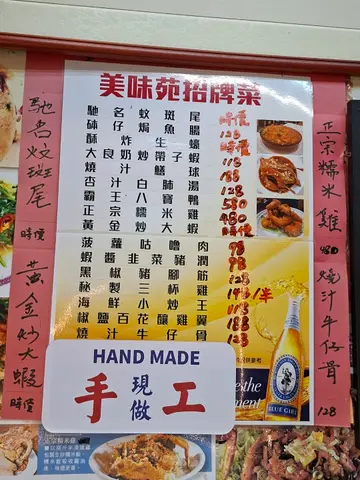 美味苑招牌菜
馳名蚊斑尾 時價
砵仔焗魚腸 128
酥炸生蠔 時價
大良奶炒帶子蝦 118
燒汁鱔球 188
杏汁白肺湯 128
霸王八寶鴨 580
正宗糯米雞 480
黃金炒大蝦 時價
菠蘿咕嚕肉 98
蝦醬韭菜豬潤 98
黑椒豬腳筋 128
秘製三杯雞 148/半
海鮮小炒王 118
椒鹽百花釀雞翼 188
燒汁牛仔骨 128
馳名炆斑尾 時價
黃金炒大蝦 時價
正宗糯米雞 480
燒汁牛仔骨 128
HAND MADE
手現做工
BLUE GIRL